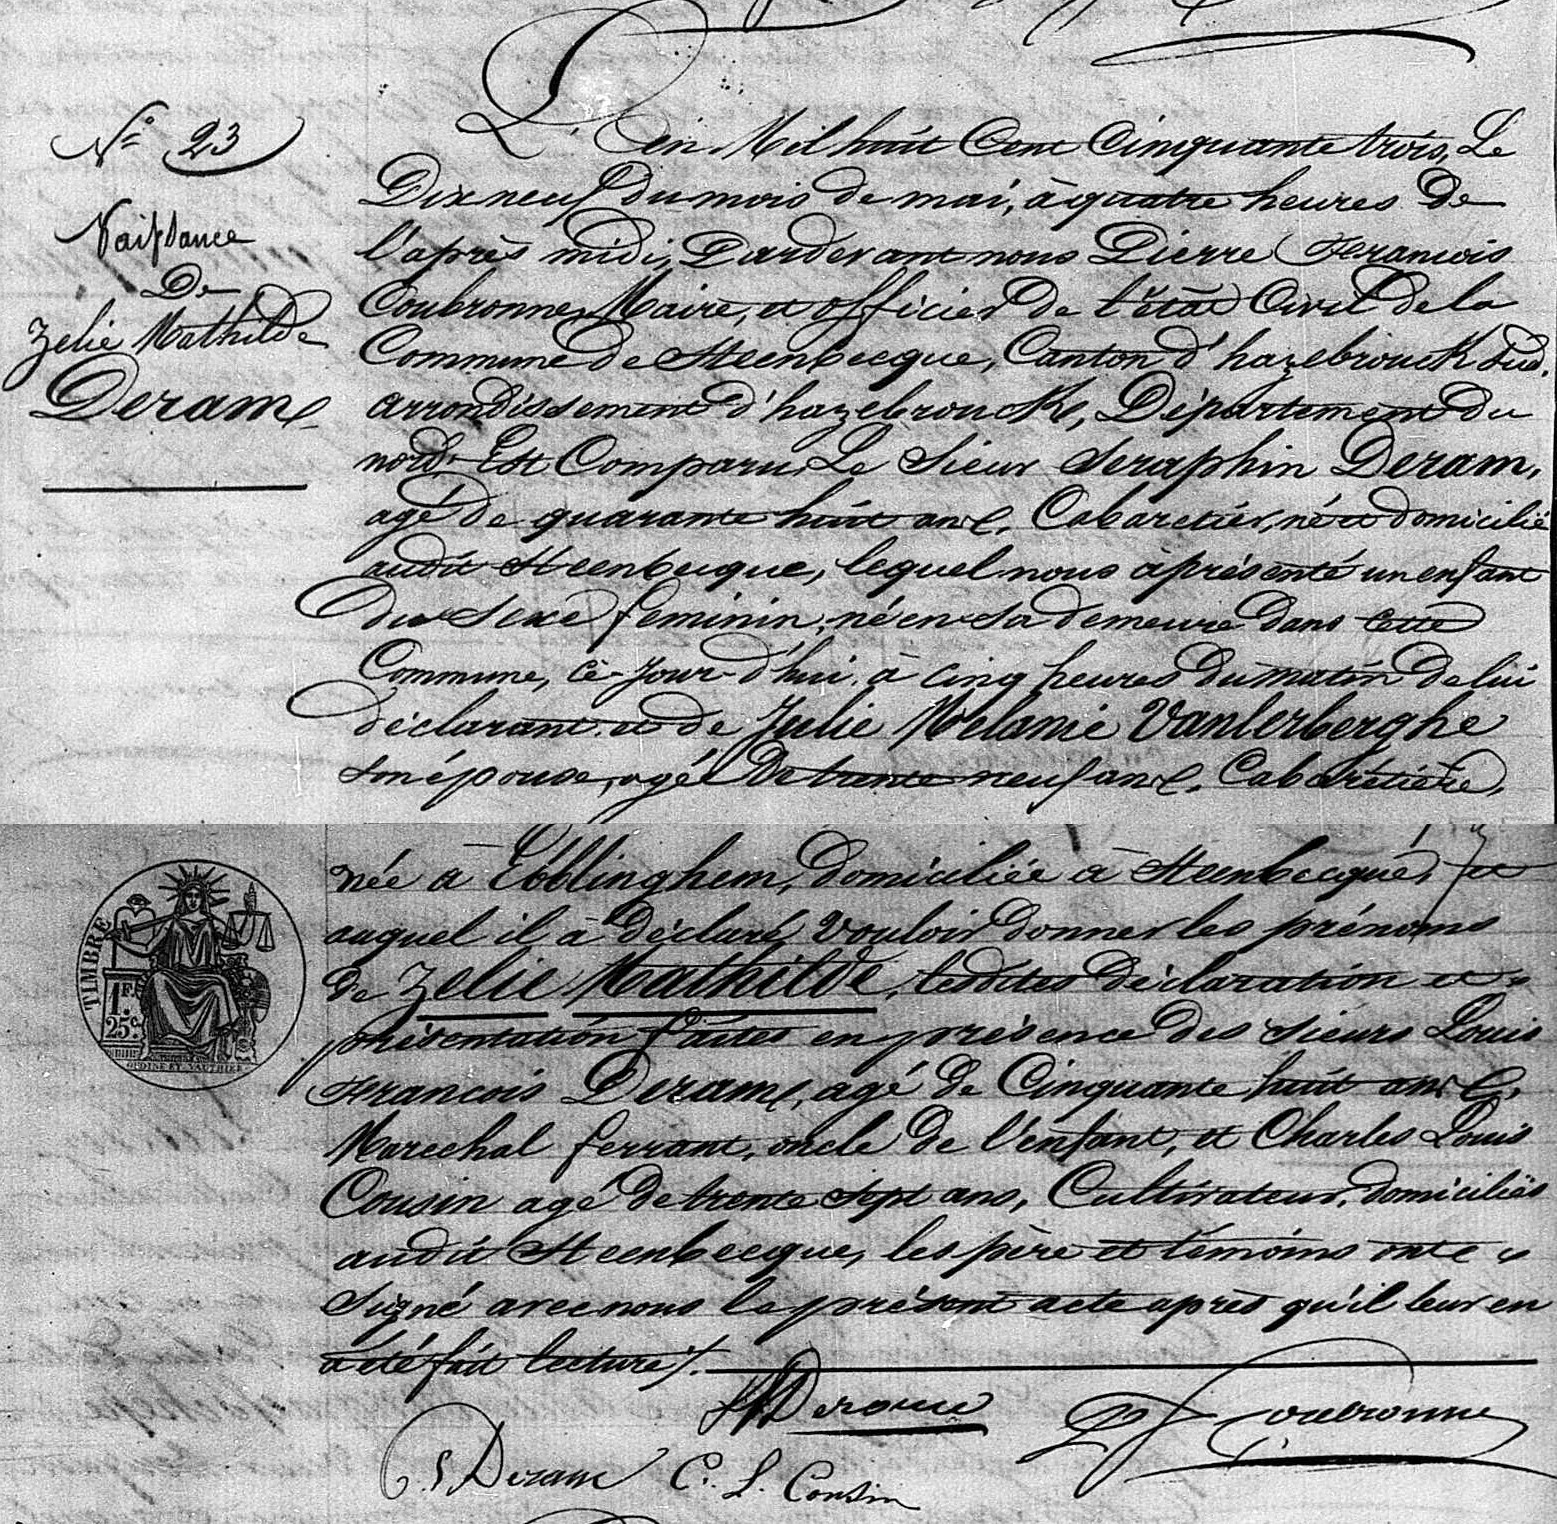 N° 23
Naissance
De
Zelie Mathilde
Deram
L'an Mil huit Cent Cinquante trois, Le
Dix neuf du mois de mai, à quatre heures de
l'après midi, Pardevant nous Pierre François
Coubronne, Maire, et officier de l'état Civil de la
Commune de Steenbecque, Canton d'hazebrouck sud,
arrondissement d'hazebrouck, Département du
nord, Est Comparu, Le Sieur Seraphin Deram,
agé de quarante huit ans, Cabaretier, né et domicilié
audit Steenbecque, lequel nous à présenté un enfant
du Sexe feminin, né en sa demeure dans cette
Commune, ce-jour-d'hui, à cinq heures du matin de lui
déclarant et de Julie Melanie Vanlerberghe
son épouse, agée de trente neuf ans, Cabaretière,
née à Ebblinghem, domiciliée à Steenbecque, et
auquel il à déclaré vouloir donner les prénoms
de Zelie Mathilde, lesdites déclaration et
présentation faites en présence des sieurs Louis
François Deram, agé de Cinquante huit ans,
Marechal ferrant, oncle de l'enfant, et Charles Louis
Cousin agé de trente sept ans, Cultivateur, domiciliés
audit Steenbecque, les père et témoins ont
Signé avec nous le présent acte après qu'il leur en
a été fait lecture /.
TIMBRE
1F.
25c
OUDINE ET VAUTHIER
Derame
Coubronne
S Deram C. L. Cousin